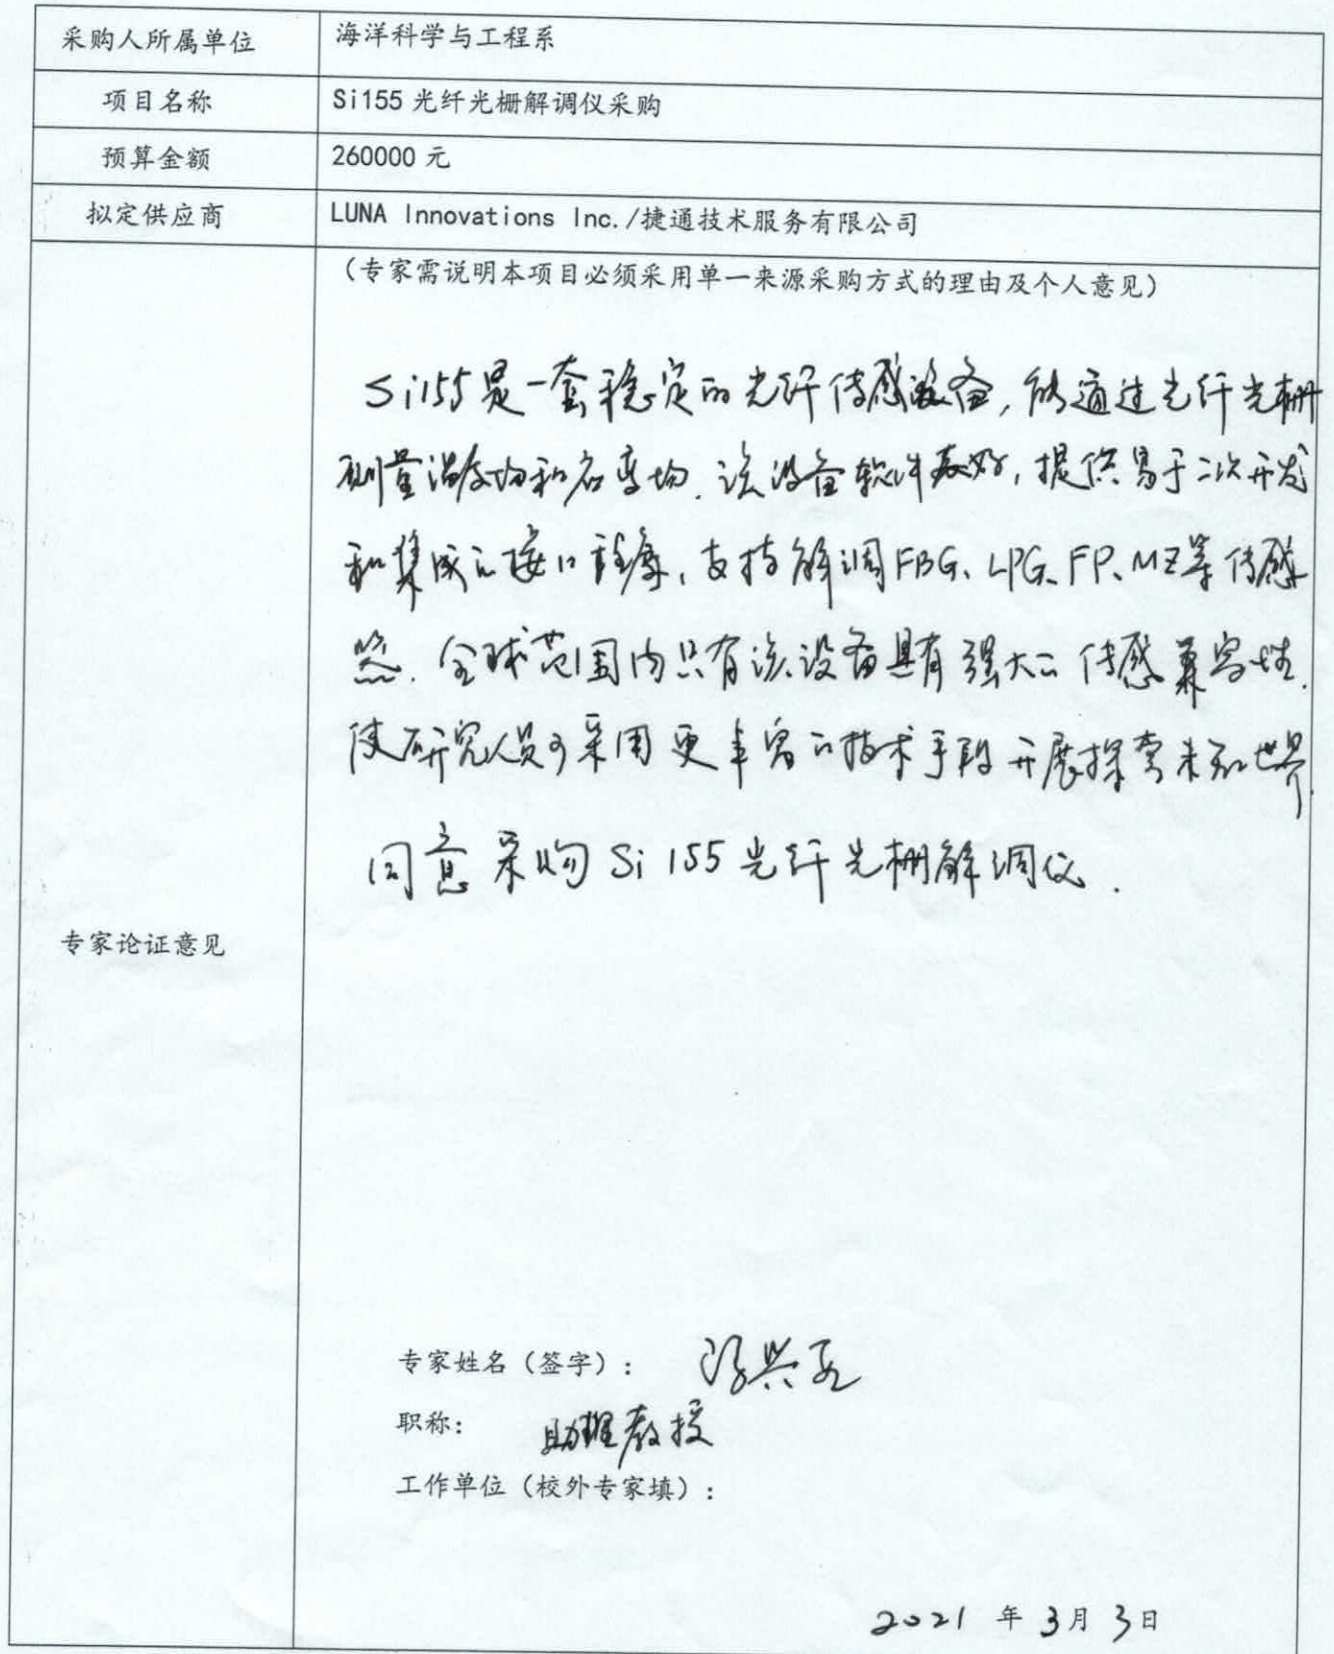 采购人所属单位 海洋科学与工程系
项目名称 Si155 光纤光栅解调仪采购
预算金额 260000 元
拟定供应商 LUNA Innovations Inc./捷通技术服务有限公司
(专家需说明本项目必须采用单一来源采购方式的理由及个人意见)
Si155是一套稳定的光纤传感设备,能通过光纤光栅
测量温度场和应变场.该设备软件友好,提供易于二次开发
和集成的接口,支持解调FBG、LPG、FP、MZ等传感
器.全球范围内只有该设备具有强大的传感兼容性.
使研究人员可采用更丰富的技术手段开展探索未知世界.
同意采购Si 155光纤光栅解调仪.
专家论证意见
专家姓名(签字):
职称: 助理教授
工作单位(校外专家填):
2021 年 3月 3日